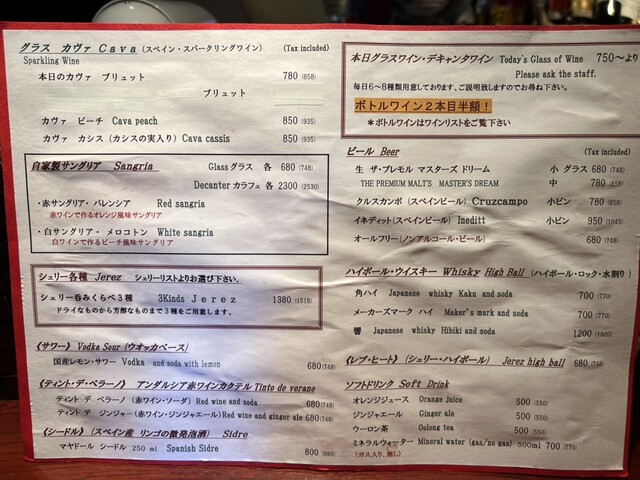 グラス カヴァ Cava (スペイン・スパークリングワイン) (Tax included)
Sparkling Wine
本日のカヴァ ブリュット 780 (858)
ブリュット
カヴァ ピーチ Cava peach 850 (935)
カヴァ カシス (カシスの実入り) Cava cassis 850 (935)
自家製サングリア Sangria Glassグラス 各 680 (748)
Decanterカラフェ 各 2300 (2530)
・赤サングリア・バレンシア Red sangria
赤ワインで作るオレンジ風味サングリア
・白サングリア・メロコトン White sangria
白ワインで作るピーチ風味サングリア
シェリー各種 Jerez シェリーリストよりお選び下さい。
シェリー呑みくらべ3種 3Kinds Jerez 1380 (1518)
ドライなものから芳醇なものまで3種をご用意します。
《サワー》 Vodka Sour (ウオッカベース)
国産レモン・サワー Vodka and soda with lemon 680(748)
《ティント・デ・ベラーノ》 アンダルシア赤ワインカクテル Tinto de verano
ティント デ ベラーノ (赤ワイン・ソーダ) Red wine and soda 680(748)
ティント デ ジンジャー (赤ワイン・ジンジャエール) Red wine and ginger ale 680(748)
《シードル》 (スペイン産 リンゴの微発泡酒) Sidre
マヤドール シードル 250 ml Spanish Sidre 800 (880)
本日グラスワイン・デキャンタワイン Today's Glass of Wine 750〜より
Please ask the staff.
毎日6〜8種類用意しております、ご説明致しますのでお尋ね下さい。
ボトルワイン2本目半額！
＊ボトルワインはワインリストをご覧下さい
ビール Beer (Tax included)
生 ザ・プレモル マスターズ ドリーム 小 グラス 680 (748)
THE PREMIUM MALT'S MASTER'S DREAM 中 780 (858)
クルスカンポ (スペインビール) Cruzcampo 小ビン 780 (858)
イネディット(スペインビール) Ineditt 小ビン 950 (1045)
オールフリー(ノンアルコール・ビール) 680 (748)
ハイボール・ウイスキー Whisky High Ball (ハイボール・ロック・水割り)
角ハイ Japanese whisky Kaku and soda 700 (770)
メーカーズマーク ハイ Maker's mark and soda 700 (770)
響 Japanese whisky Hibiki and soda 1200 (1320)
《レブ・ヒート》 (シェリー・ハイボール) Jerez high ball 680 (748)
ソフトドリンク Soft Drink
オレンジジュース Orange Juice 500 (550)
ジンジャエール Ginger ale 500 (550)
ウーロン茶 Oolong tea 500 (550)
ミネラルウォーター Mineral water (gas/no gas) 500ml 700 (770)
(ガス入り、無し)